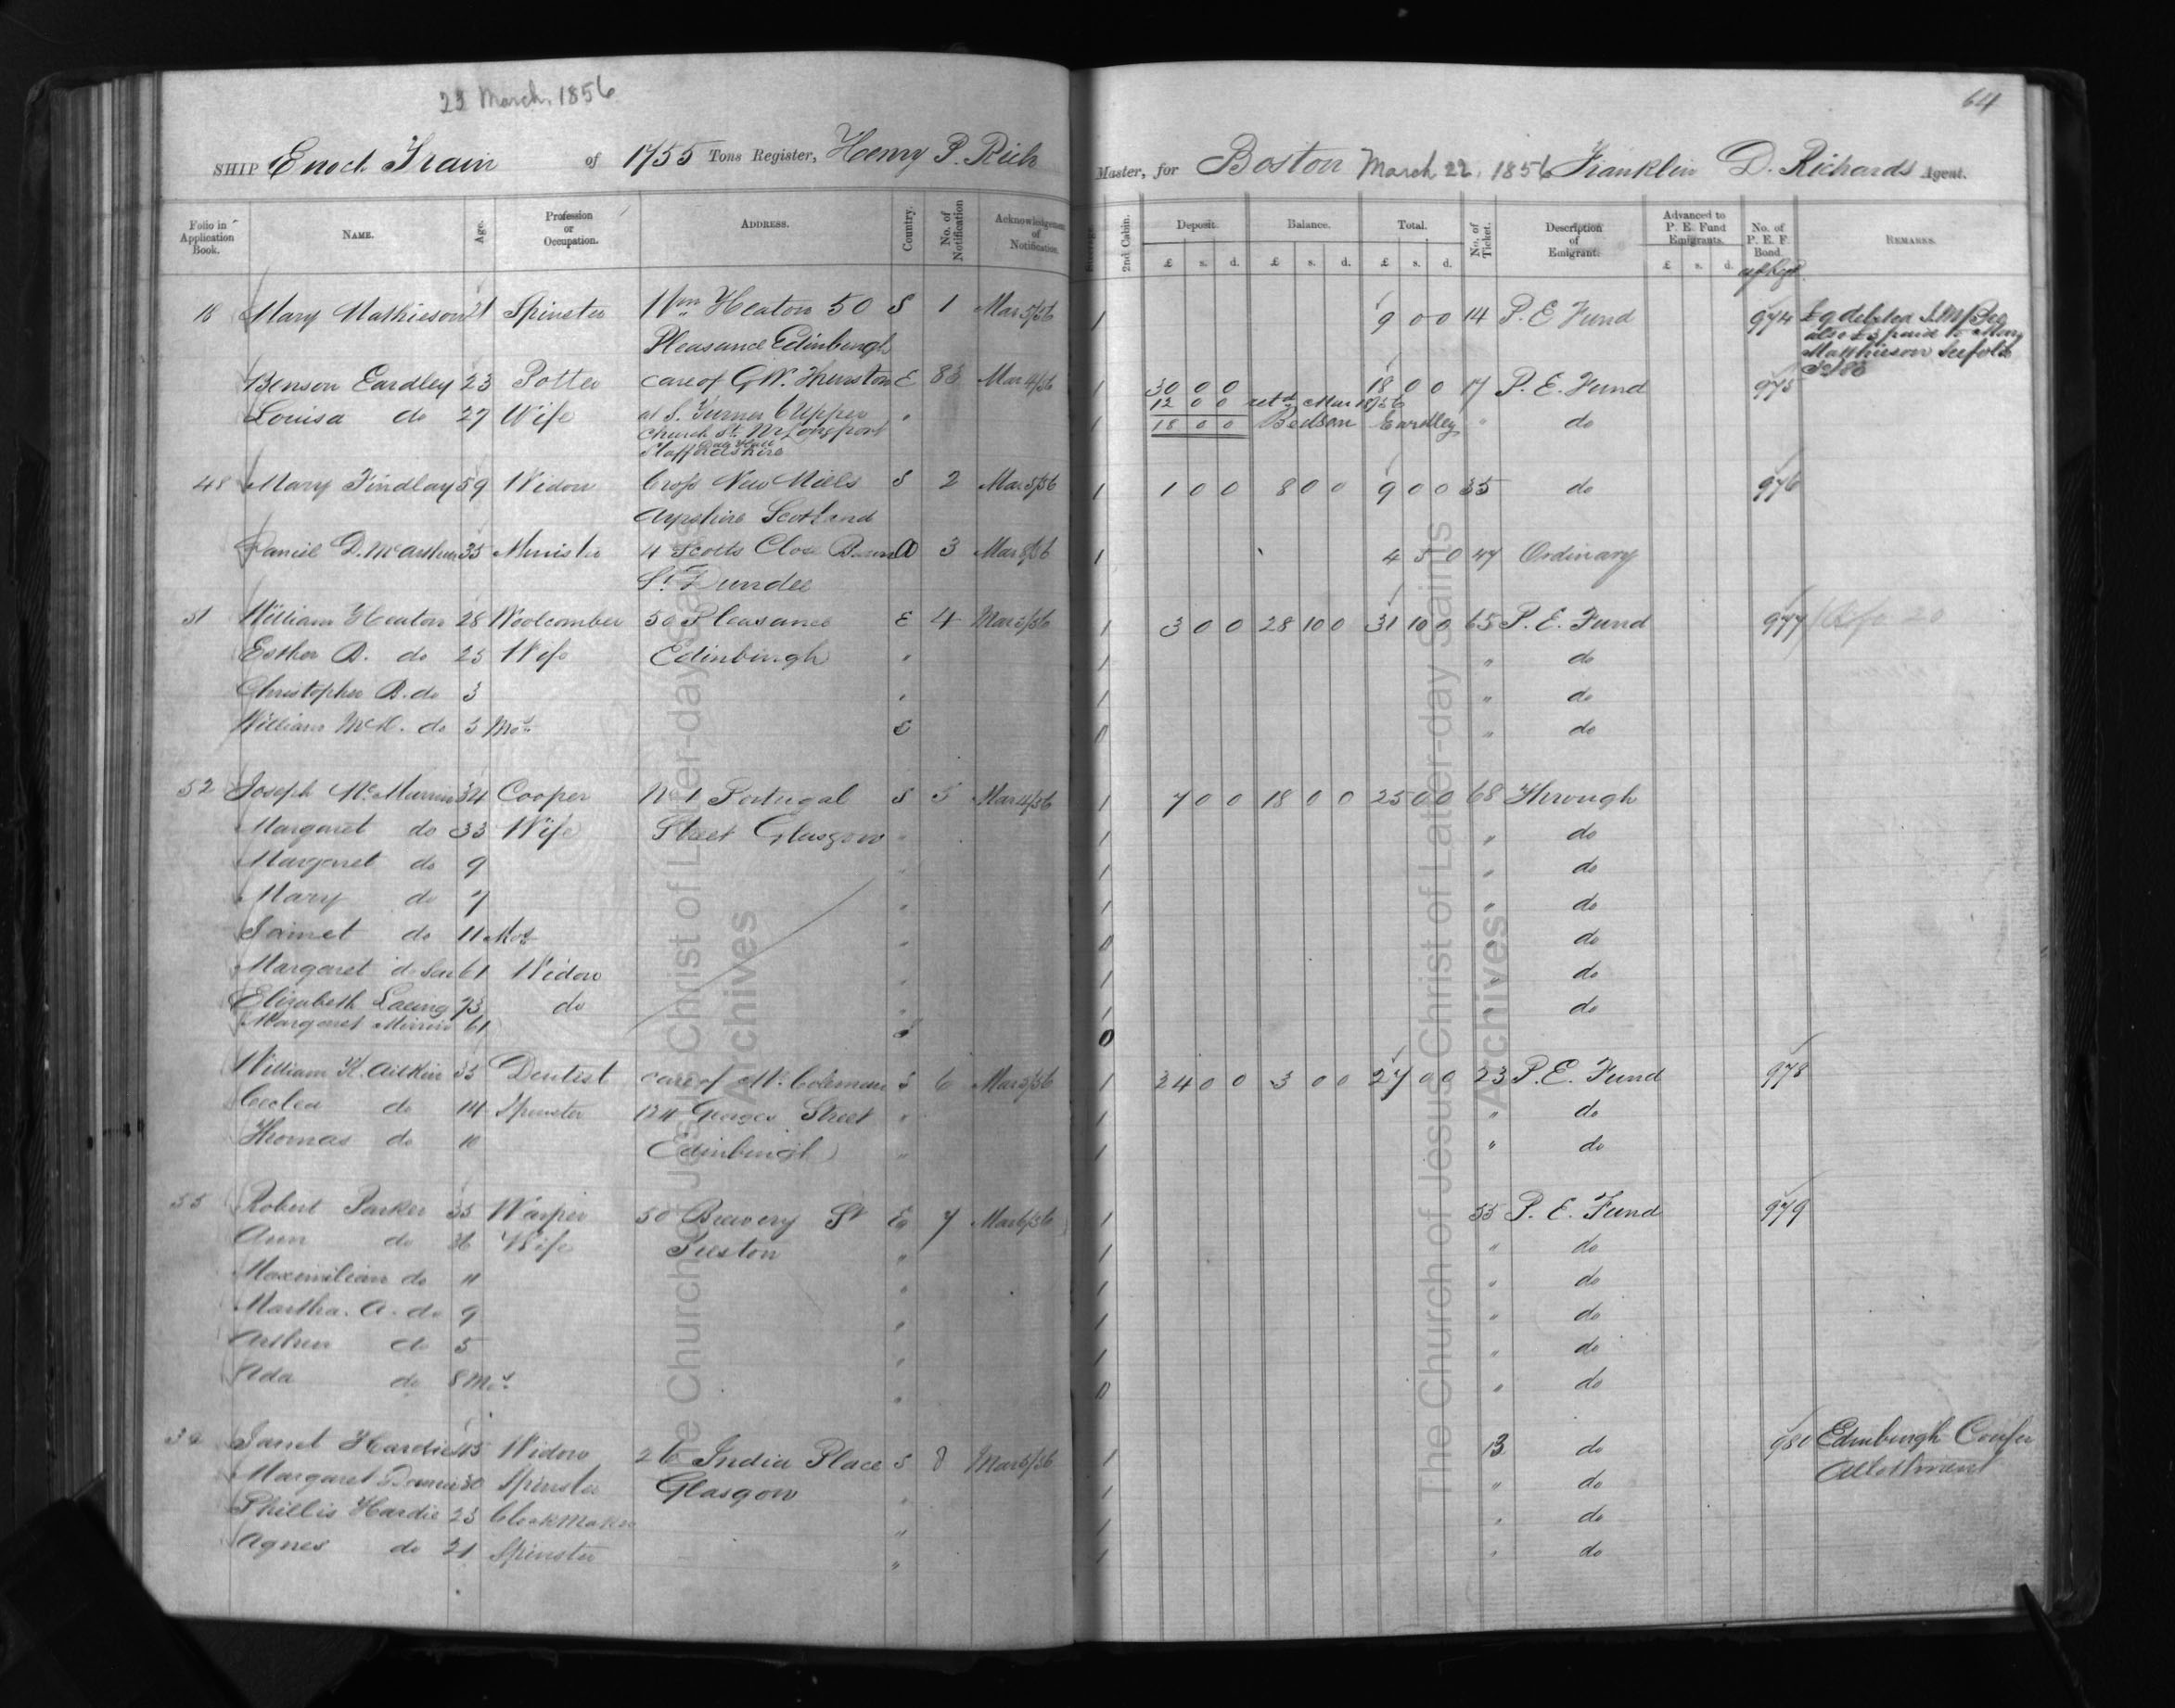 23 March, 1856
64
SHIP Enoch Train of 1755 Tons Register, Henry P. Rich Master, for Boston March 22, 1856 Franklin D. Richards Agent.
Folio in Application Book. NAME. Age. Profession or Occupation. ADDRESS. Country. No. of Notification Acknowledgement of Notification. Steerage 2nd Cabin. Deposit Balance. Total. No. of Ticket. Description of Emigrant. Advanced to P. E. Fund Emigrants. No. of P. E. F. Bond. REMARKS.
£ s. d. £ s. d. £ s. d. £ s. d.
18 Mary Mathieson 21 Spinster Wm Heaton 50 S 1 Mar 5/56 1 9 0 0 14 P. E Fund 974 £9 debited
Pleasance Edinburgh Matthieson
Benson Eardley 23 Potter care of G.W. Thurston E 83 Mar 4/56 1 30 0 0 18 0 0 17 P. E. Fund 975
12 0 0 retd Mar 18/56
Louisa do 27 Wife at S. Turner 6 Upper " 1 18 0 0 Bedson Eardley " do
Church St. Nr Longport
Staffordshire
48 Mary Findlay 59 Widow Cross New Mills S 2 Mar 5/56 1 1 0 0 8 0 0 9 0 0 35 do 976
Ayrshire Scotland
Daniel D. McArthur 35 Minister 4 Scotts Close A 3 Mar 8/56 1 4 5 0 47 Ordinary
St. Dundee
51 William Heaton 28 Woolcomber 50 Pleasance E 4 Mar 5/56 1 3 0 0 28 10 0 31 10 0 65 P. E. Fund 977
Esther B. do 25 Wife Edinburgh " 1 " do
Christopher B. do 3 " 1 " do
William McD. do 5 Mos. E 0 " do
52 Joseph McMurrin 34 Cooper No 1 Portugal S 5 Mar 4/56 1 7 0 0 18 0 0 25 0 0 68 Through
Margaret do 33 Wife Street Glasgow " 1 " do
Margaret do 9 " 1 " do
Mary do 7 " 1 " do
Jannet do 11 Mos " 0 " do
Margaret do Sen 61 Widow " 1 " do
Elizabeth Laeing 73 do " 1 do
Margaret 61 S 0
William K. Aitkin 35 Dentist care of Mr. Coleman S 6 Mar 5/56 1 24 0 0 3 0 0 27 0 0 23 P. E. Fund 978
Ceclea do 14 Spinster 124 Georges Street " 1 " do
Thomas do 10 Edinburgh " 1 " do
55 Robert Parker 35 Warper 50 Brewery St E 7 Mar 6/56 1 55 P. E. Fund 979
Ann do 36 Wife Preston " 1 " do
Maxemilian do 11 " 1 " do
Martha. A. do 9 " 1 " do
Arthur do 5 " 1 " do
Ada do 8 Mos. " 0 " do
Janet Hardie 45 Widow 26 India Place S 8 Mar 6/56 1 13 do 980 Edinburgh Confer
Margaret 30 Spinster Glasgow " 1 " do Allotment
Phillis Hardie 23 Cloakmaker " 1 " do
Agnes do 21 Spinster " 1 " do
The Church of Jesus Christ of Latter-day Saints
Archives
The Church of Jesus Christ of Latter-day Saints
Archives